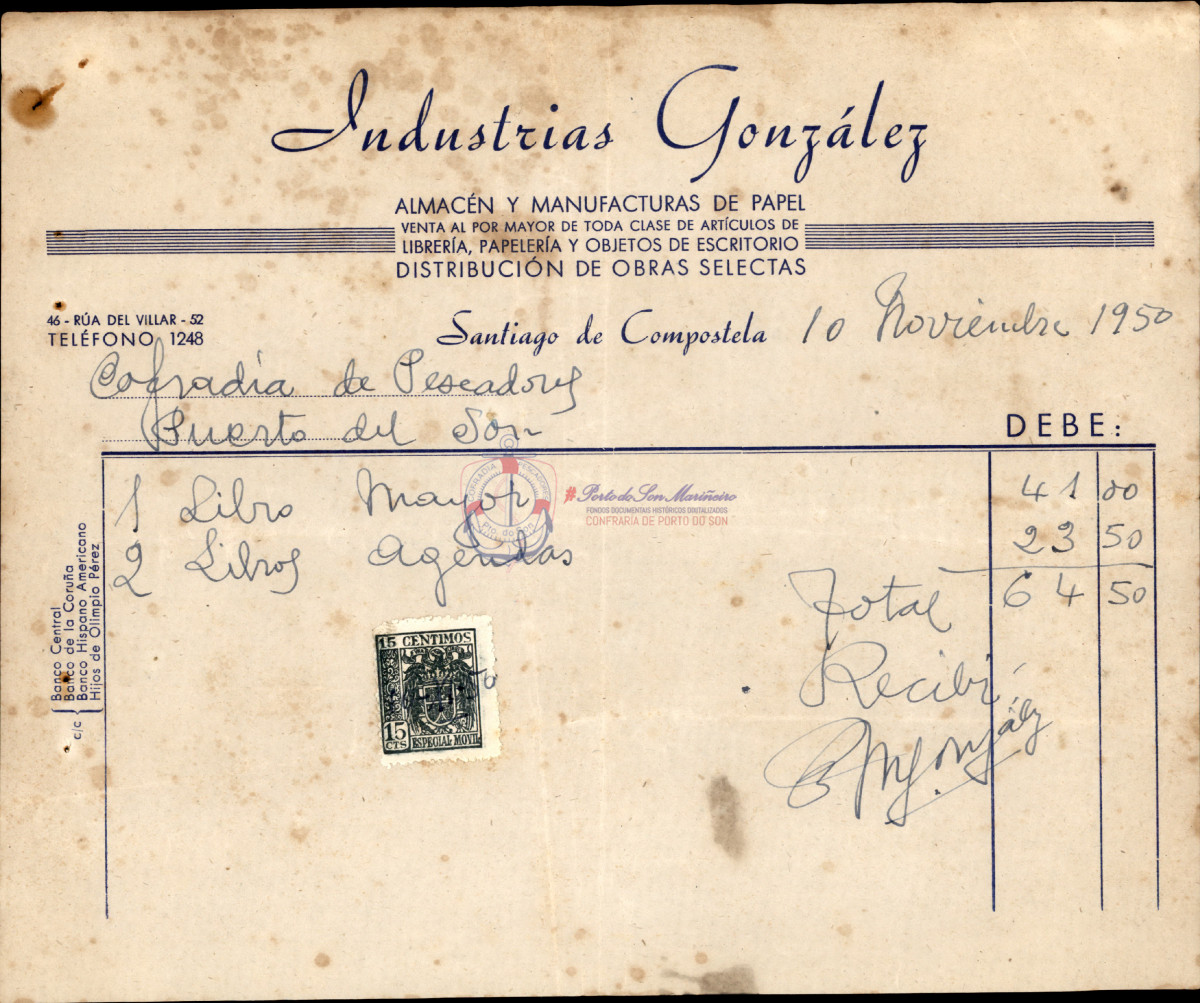 Industrias González
ALMACÉN Y MANUFACTURAS DE PAPEL
VENTA AL POR MAYOR DE TODA CLASE DE ARTÍCULOS DE
LIBRERÍA, PAPELERÍA Y OBJETOS DE ESCRITORIO
DISTRIBUCIÓN DE OBRAS SELECTAS
46 - RÚA DEL VILLAR - 52
TELÉFONO 1248
Santiago de Compostela 10 Noviembre 1950
Cofradía de Pescadores
Puerto del Son
DEBE:
1 Libro Mayor 41 00
2 Libros agendas 23 50
Total 64 50
Recibí
González
c/c
Banco Central
Banco de la Coruña
Banco Hispano Americano
Hijos de Olimpio Pérez
15 CENTIMOS
15
CTS
ESPECIAL MOVIL
COFRADIA PESCADORES
Pto. do Son
#Porto do Son Mariñeiro
FONDOS DOCUMENTAIS HISTÓRICOS DIXITALIZADOS
CONFRARÍA DE PORTO DO SON